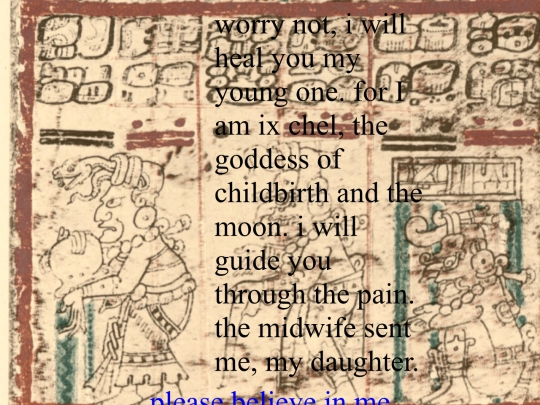 worry not, i will
heal you my
young one. for I
am ix chel, the
goddess of
childbirth and the
moon. i will
guide you
through the pain.
the midwife sent
me, my daughter.
please believe in me